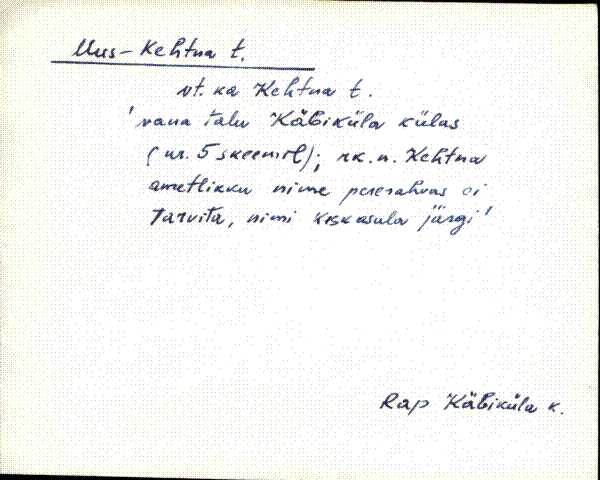 Uus-Kehtna t.
vt. ka Kehtna t.
'vana talu Käbiküla külas
(nr. 5 skeemil); rk. n. Kehtna
ametlikku nime pererahvas ei
tarvita, nimi keskasula järgi'
Rap Käbiküla k.